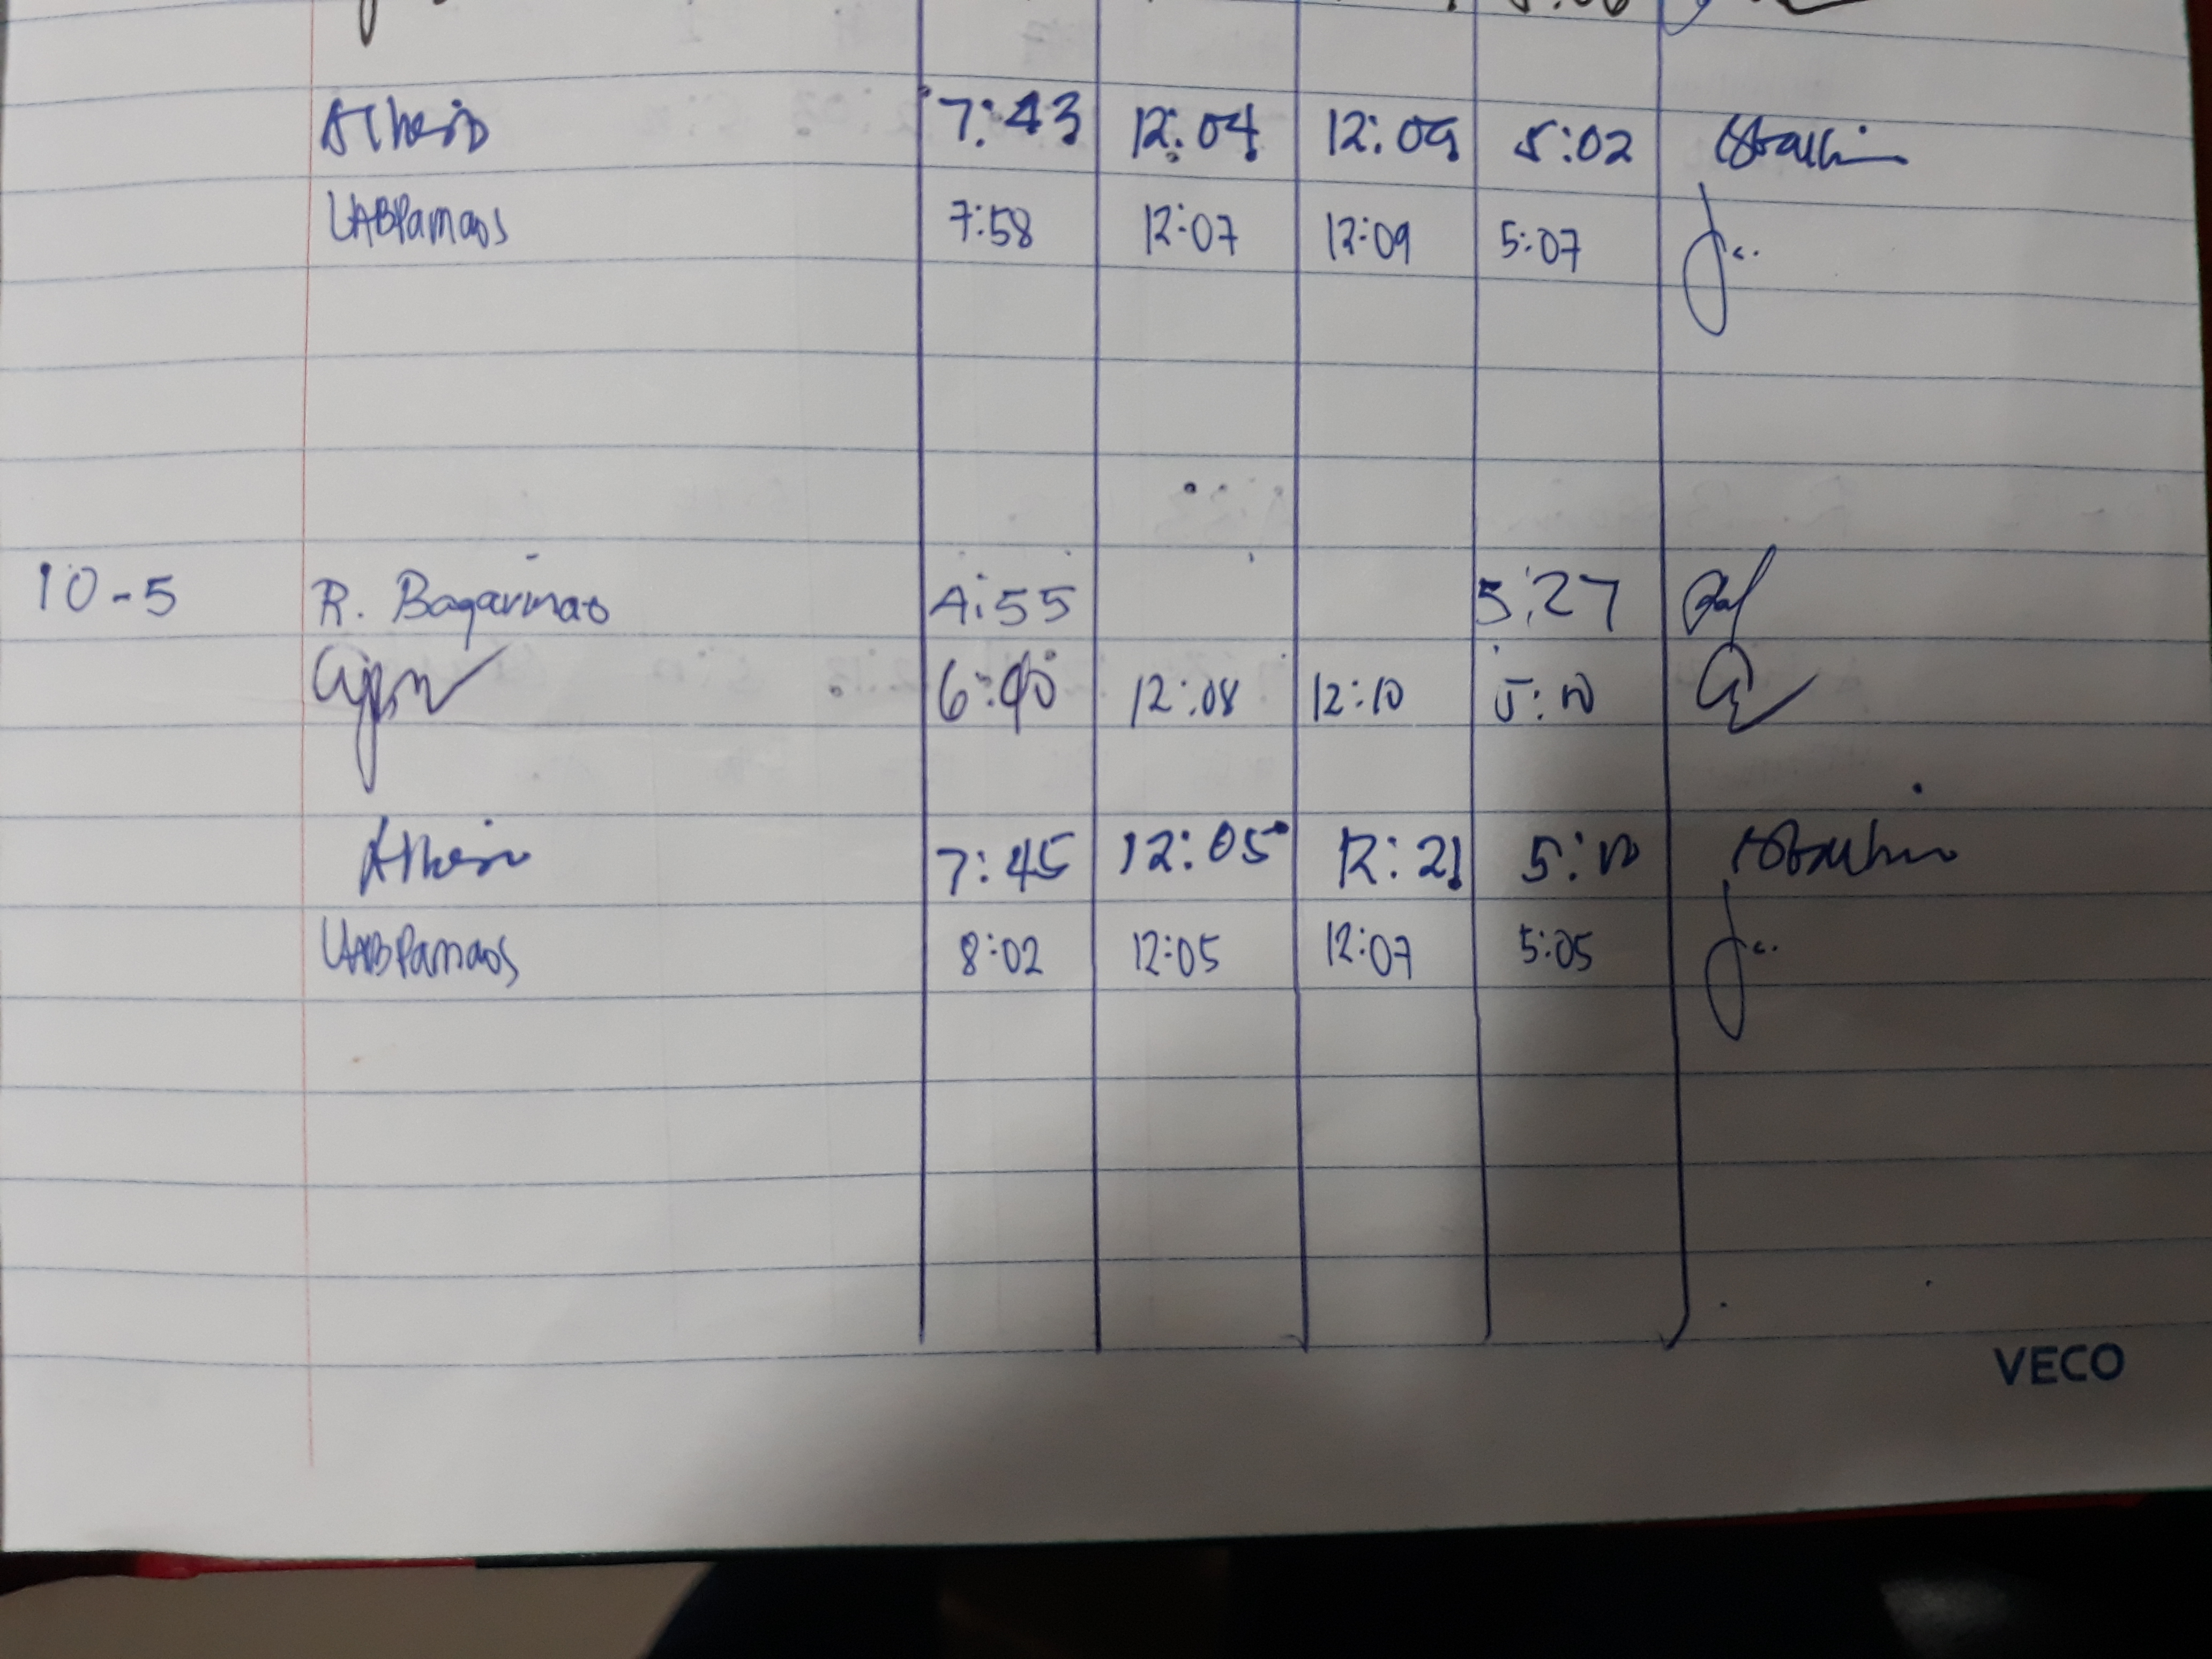 7:43 12:04 12:09 5:02
UABPamaos 7:58 12:07 12:09 5:07
10-5 R. Bagarinao 4:55 5:27
6:40 12:08 12:10 5:10
7:45 12:05 12:21 5:10
UABPamaos 8:02 12:05 12:07 5:05
VECO